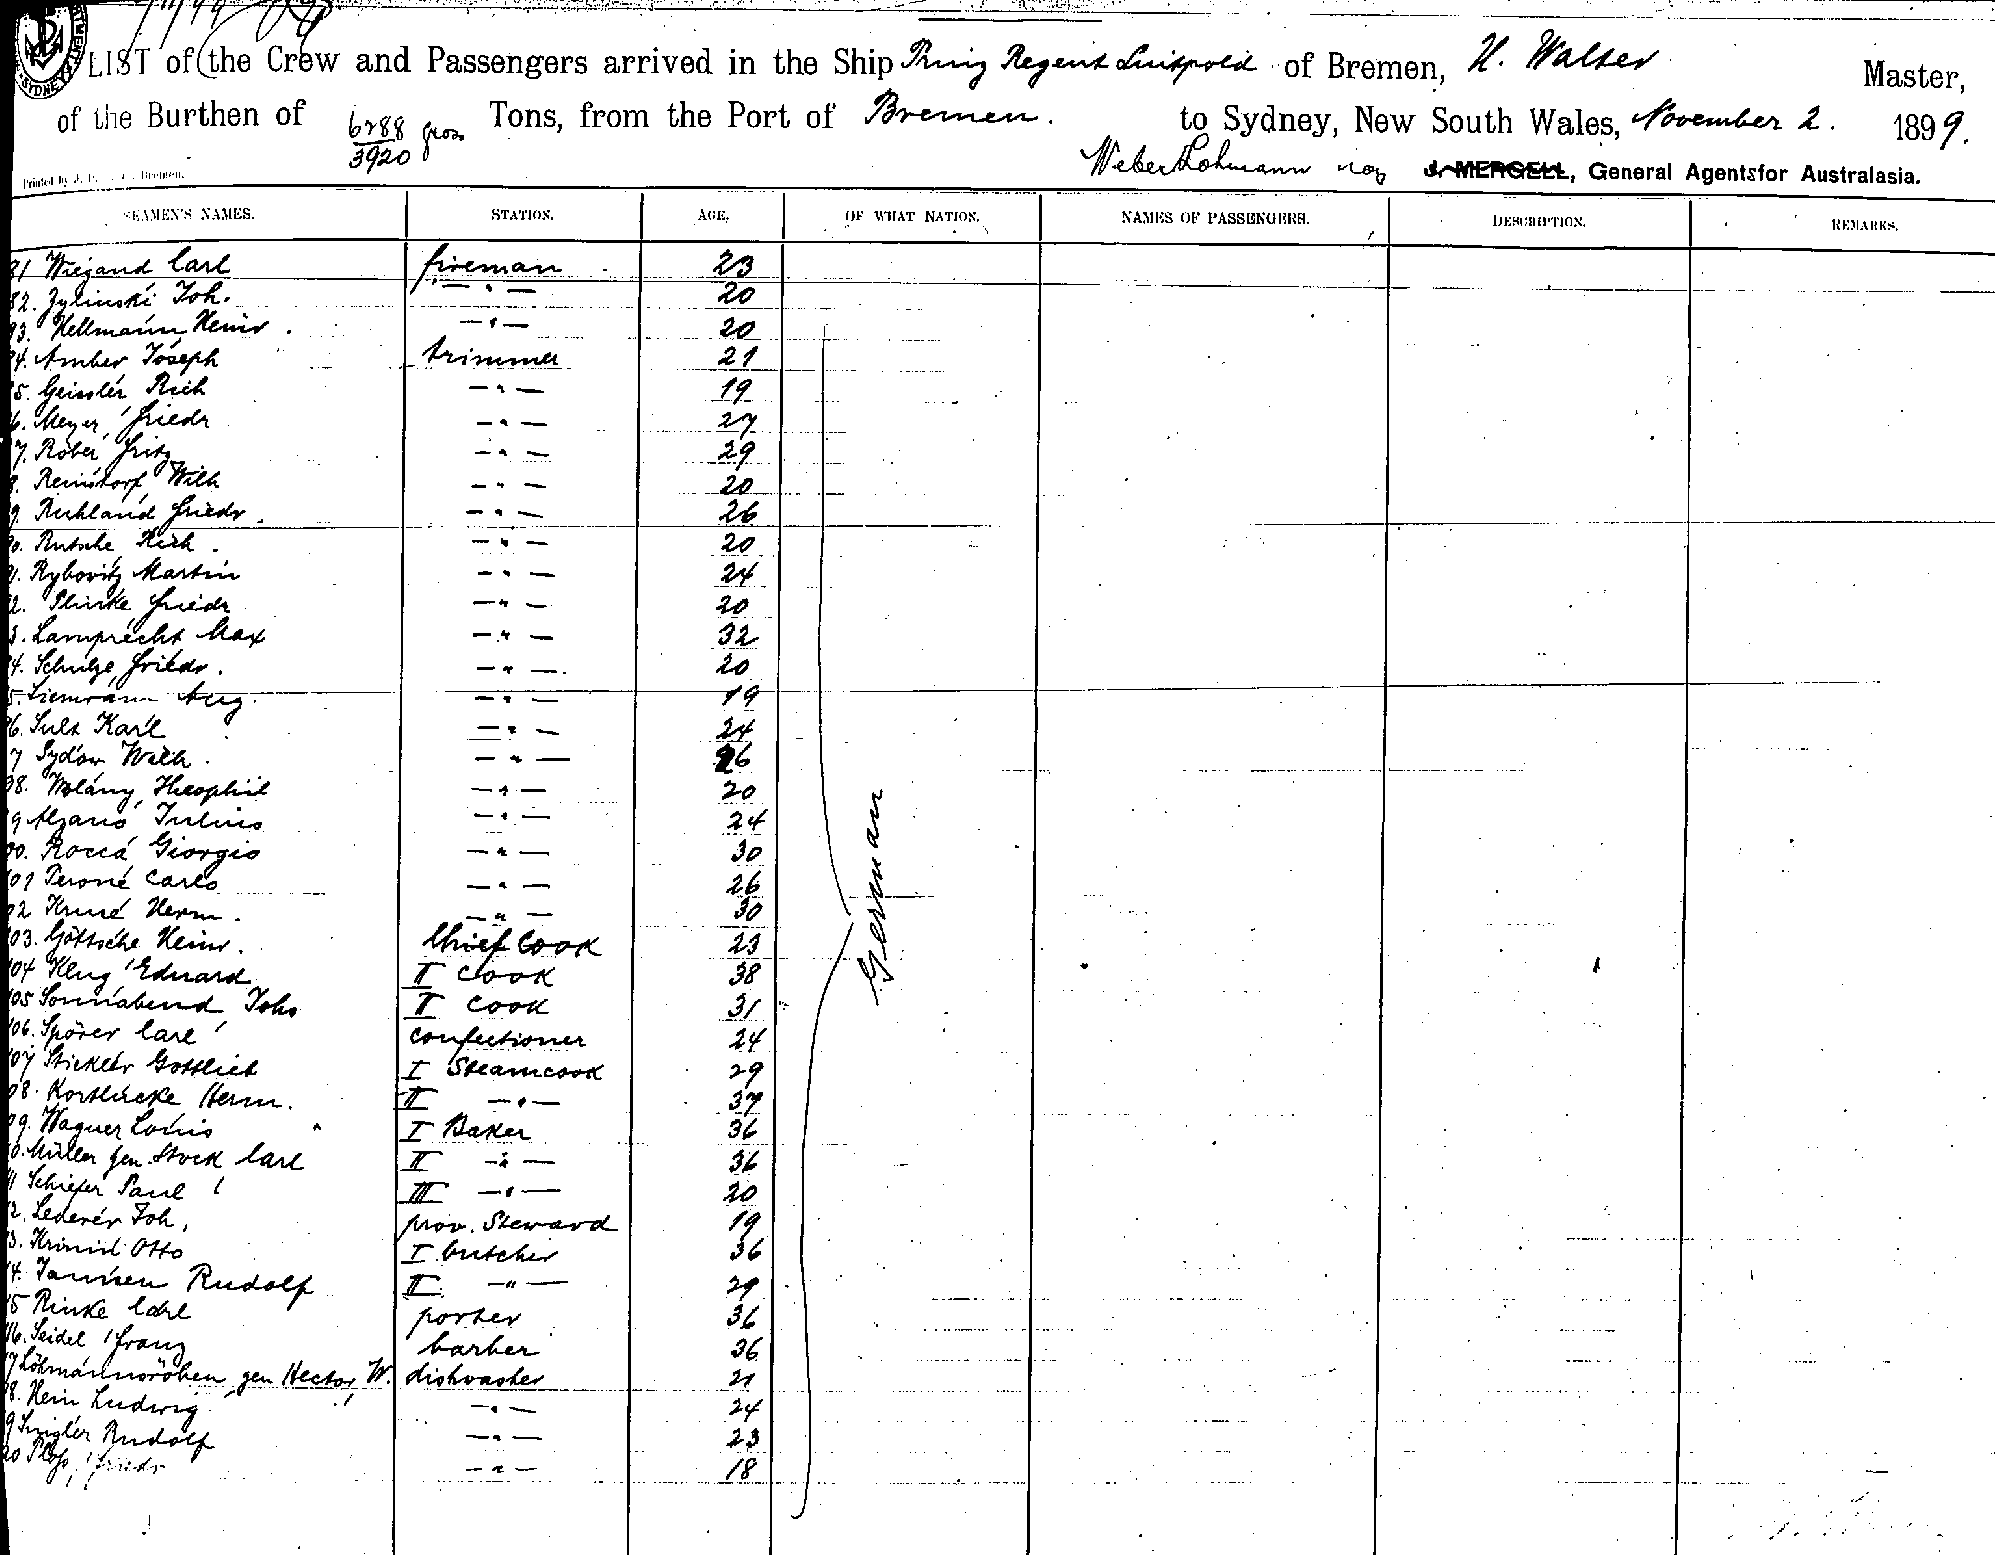 LIST of the Crew and Passengers arrived in the Ship Prinz Regent Luitpold of Bremen, H. Walter Master,
of the Burthen of 6288 gross 3920 Tons, from the Port of Bremen. to Sydney, New South Wales, November 2. 1899.
J. MERGELL, General Agents for Australasia.
SEAMEN'S NAMES. STATION. AGE. OF WHAT NATION. NAMES OF PASSENGERS. DESCRIPTION. REMARKS.
81 Wiegand Carl fireman 23
82. Zylinski Joh. —"— 20
83. Hellmann Heinr. —"— 20
84. Amber Joseph trimmer 21
85. Geissler Rich —"— 19
6. Meyer Friedr —"— 27
7. Röber Fritz —"— 29
8. Reinstorf Wilh —"— 20
9. Ruhland Friedr. —"— 26
90. Rutsche Rich. —"— 20
91. Rybovitz Martin —"— 24
2. Plinke Friedr —"— 20
3. Lamprecht Max —"— 32
4. Schulze Friedr. —"— 20
5. Liemann Aug. —"— 19
96. Sult Karl —"— 24
97 Sydow Wilh. —"— 26
98. Wolany Theophil —"— 20
99 Alzano Julius —"— 24
100. Rocca Giorgio —"— 30
101 Perone Carlo —"— 26
102 Kruse Herm. —"— 30
103. Göttsche Heinr. Chief Cook 23
104 Klug Eduard II Cook 38
105 Sonnabend Johs II Cook 31
106. Spörer Carl confectioner 24
107 Stickler Gottlieb I Steamcook 29
108. Kortlücke Herm. II —"— 37
109. Wagner Louis I Baker 36
10. Müller gen. Stock Carl II —"— 36
11 Schiefer Paul III —"— 20
12. Lederer Joh. prov. Steward 19
13. Otto I butcher 36
14. Jannsen Rudolf II —"— 29
15 Rinke Carl porter 36
116. Seidel Franz barber 36
17 Löhmannsröben gen Hector, W. dishwasher 21
18. Hein Ludwig —"— 24
19 Rudolf —"— 23
20 Friedr —"— 18
German